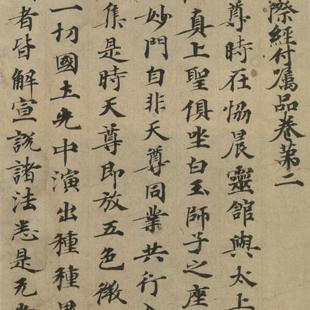 際經付囑品卷第二
尊時在協晨靈館與太上
真上聖俱坐白玉師子之座
妙門自非天尊同業共行
集是時天尊即放五色微
一切國土光中演出種種
者皆解宣說諸法悉是元